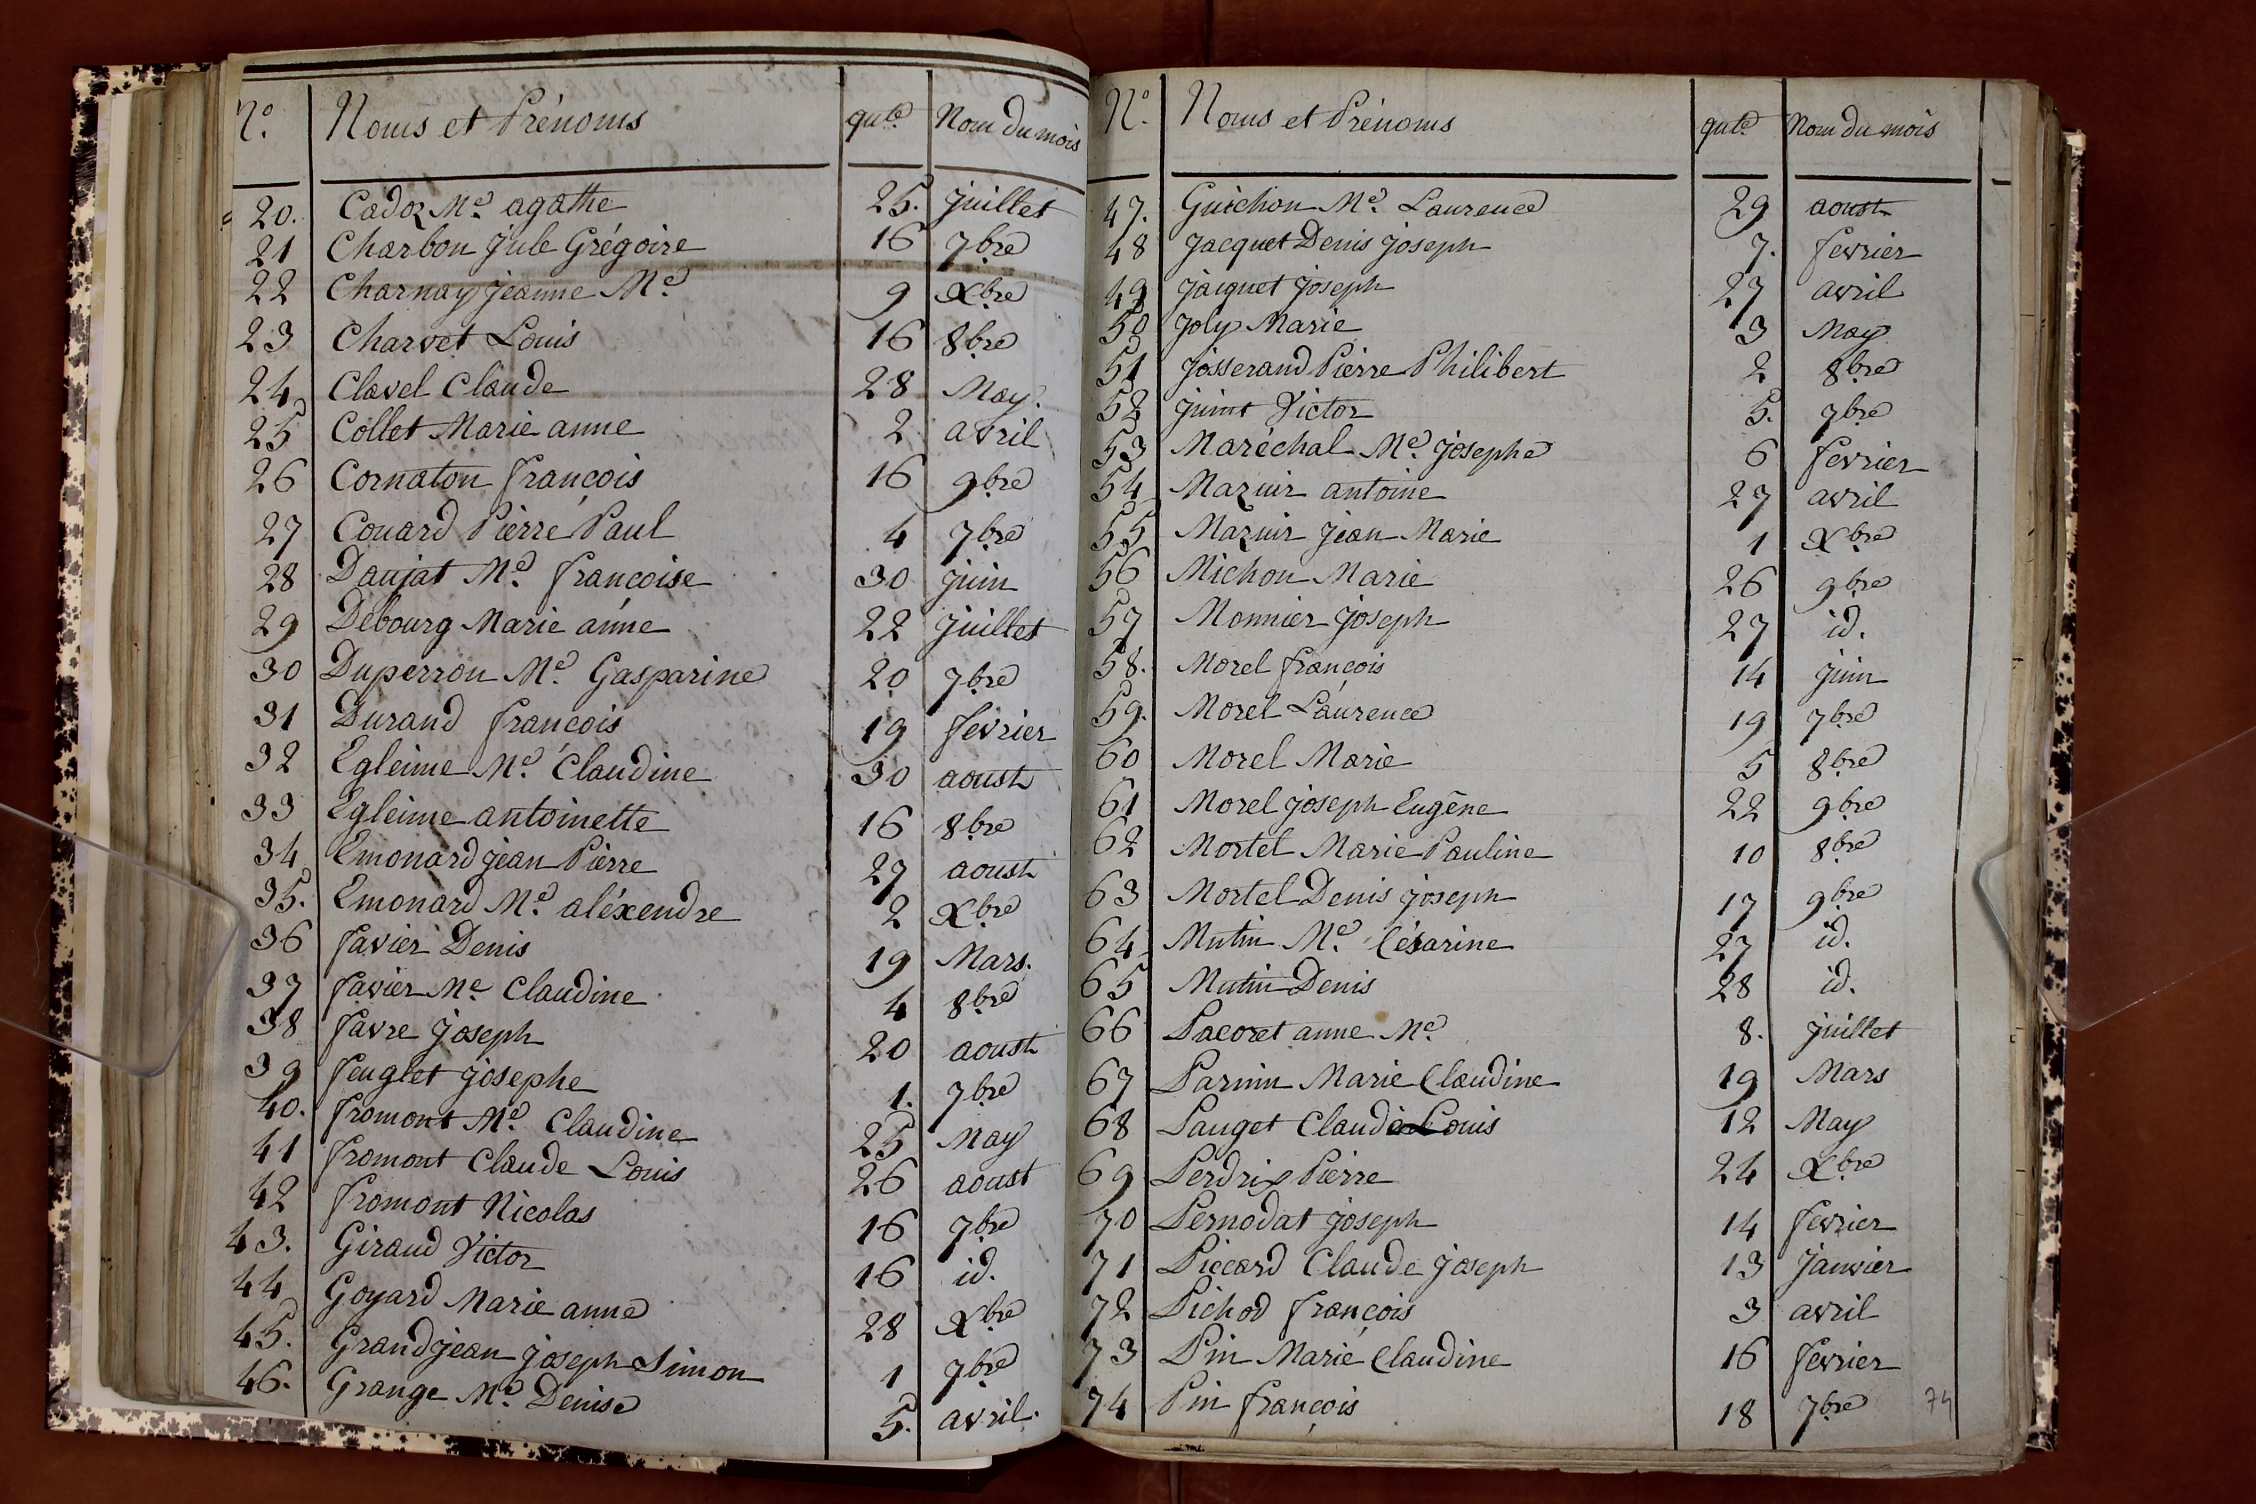 N.o Noms et Prénoms qute. Nom du mois
20. Cadoz Me. agathe 25. juillet
21 Charbon jule Grégoire 16 7bre
22 Charnay jeanne Me 9 Xbre
23 Charvet Louis 16 8bre
24 Clavel Claude 28 May.
25 Collet Marie anne 2 avril
26 Cornaton françois 16 9bre
27 Couard Pierre Paul 4 7bre
28 Daujat Me. françoise 30 juin
29 Debourg Marie anne 22 juillet
30 Duperron Me. Gasparine 20 7bre
31 Durand françois 19 fevrier
32 Egleime Me. Claudine 30 aoust
33 Egleime antoinette 16 8bre
34 Emonard jean Pierre 27 aoust
35. Emonard Me. aléxendre 2 Xbre
36 favier Denis 19 Mars.
37 favier Me Claudine 4 8bre
38 favre joseph 20 aoust
39 feuglet josephe 1. 7bre
40. fromont Me. Claudine 25 May
41 fromont Claude Louis 26 aoust
42 fromont Nicolas 16 7bre
43. Giraud Victor 16 id.
44 Goyard Marie anne 28 Xbre
45. Grandjean joseph Simon 1 7bre
46. Grange Me. Denise 5. avril.
N.o Noms et Prénoms qute. Nom du mois
47. Guichon Me. Laurence 29 aoust
48 jacquet Denis joseph 7. fevrier
49 jacquet joseph 27 avril
50 joly Marie 3 May
51 josserand Pierre Philibert 2 8bre
52 juint Victor 5. 7bre
53 Maréchal Me. josephe 6 fevrier
54 Mazuir antoine 27 avril
55 Mazuir jean Marie 1 Xbre
56 Michon Marie 26 9bre
57 Monnier joseph 27 id.
58. Morel françois 14 juin
59. Morel Laurence 19 7bre
60 Morel Marie 5 8bre
61 Morel joseph Eugène 22 9bre
62 Mortel Marie Pauline 10 8bre
63 Mortel Denis joseph 17 9bre
64 Mutin Me. Césarine 27 id.
65 Mutin Denis 28 id.
66 Pacoret anne Me. 8. juillet
67 Parnin Marie Claudine 19 Mars
68 Pauget Claude Louis 12 May
69 Perdrix Pierre 24 Xbre
70 Pernodat joseph 14 fevrier
71 Piccard Claude joseph 13 janvier
72 Pichod françois 3 avril
73 Pin Marie Claudine 16 fevrier
74 Pin françois 18 7bre 74